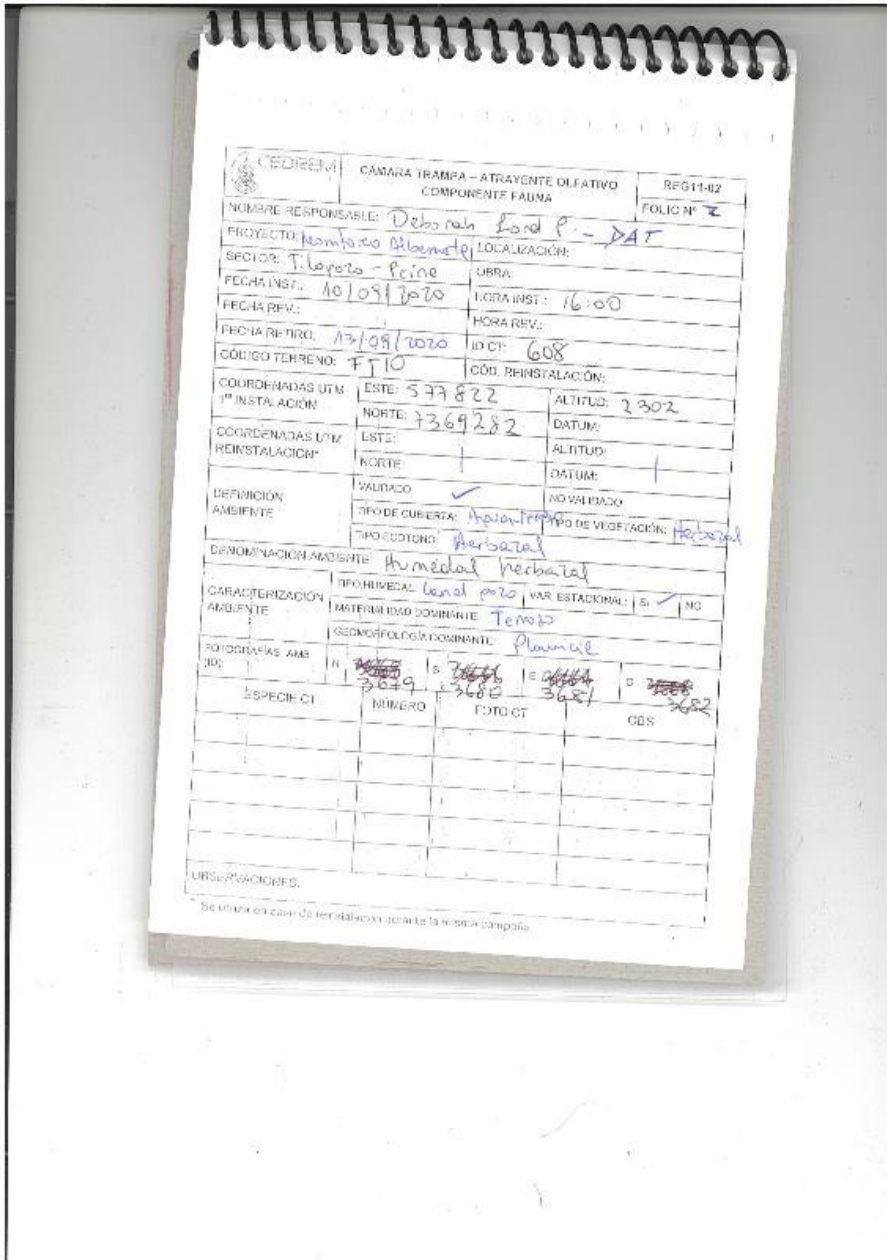 CEDREM
CÁMARA TRAMPA – ATRAYENTE OLFATIVO
COMPONENTE FAUNA
REG11-02
FOLIO N°
NOMBRE RESPONSABLE: Deborah Lord P. - DAT
PROYECTO: Monitoreo Albemarle LOCALIZACIÓN:
SECTOR: Tilopozo - Peine OBRA:
FECHA INST.: 10/09/2020 HORA INST.: 16:00
FECHA REV.: HORA REV.:
FECHA RETIRO: 13/09/2020 ID CT: 608
CÓDIGO TERRENO: FT10 CÓD. REINSTALACIÓN:
COORDENADAS UTM
1ra INSTALACIÓN
ESTE: 577822 ALTITUD: 2302
NORTE: 7369282 DATUM:
COORDENADAS UTM
REINSTALACION*
ESTE: ALTITUD:
NORTE: DATUM:
DEFINICIÓN
AMBIENTE
VALIDADO ✓ NO VALIDADO
TIPO DE CUBIERTA: TIPO DE VEGETACIÓN: Herbazal
TIPO ECOTONO: Herbazal
DENOMINACIÓN AMBIENTE: Humedal herbazal
CARACTERIZACIÓN
AMBIENTE
TIPO HUMEDAL: Canal pozo VAR. ESTACIONAL: SI ✓ NO
MATERIALIDAD DOMINANTE: Terroso
GEOMORFOLOGÍA DOMINANTE: Planicie
FOTOGRAFÍAS AMB
(ID):
N 3679 S 3680 E 3681 O 3682
ESPECIE CT NÚMERO FOTO CT OBS
OBSERVACIONES:
* Se utiliza en caso de reinstalación durante la misma campaña